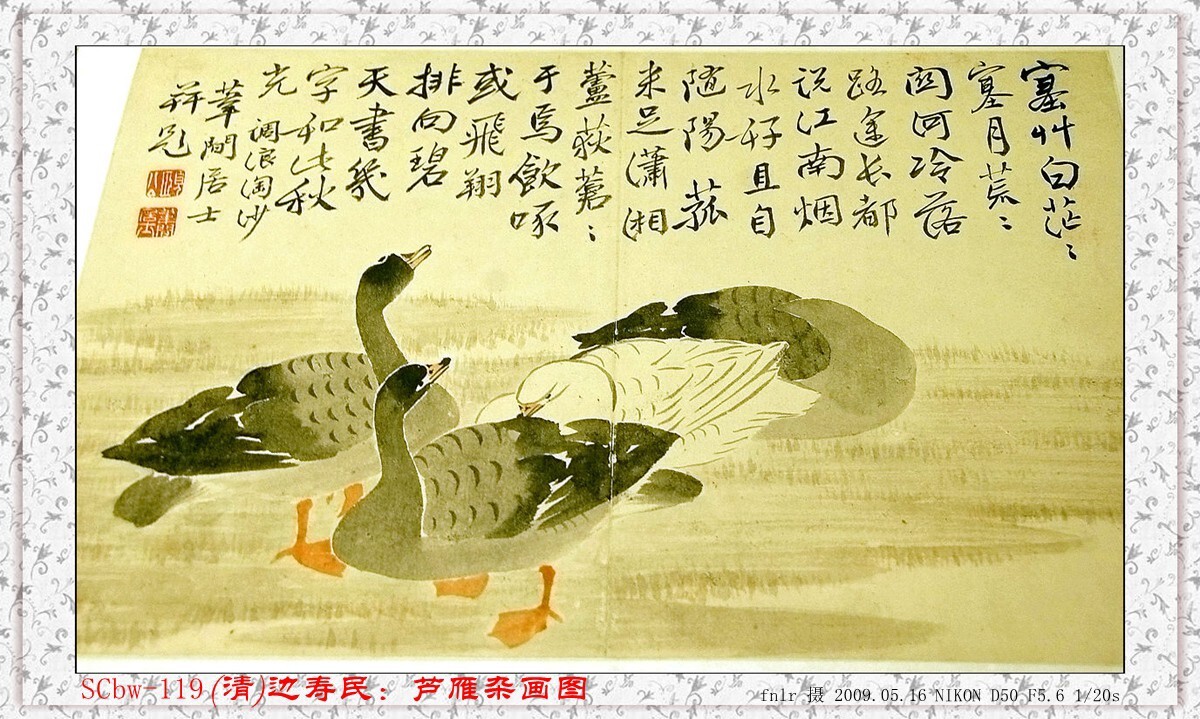 塞艸白茫〻
塞月荒〻
関河冷落
路途长都
说江南烟
水好且自
随陽菰
米足瀟湘
蘆荻蒼〻
于焉飲啄
或飛翔
排向碧
天書幾
字和此秋
光 调浪淘沙
葦間居士
并题
SCbw-119(清)边寿民：芦雁杂画图
fnlr 摄 2009.05.16 NIKON D50 F5.6 1/20s